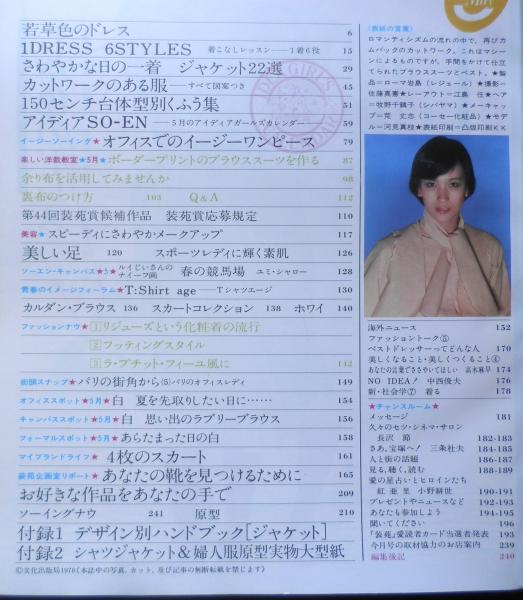 若草色のドレス 6
1DRESS 6STYLES 着こなしレッスン——1着6役 15
さわやかな日の一着 ジャケット22選 29
カットワークのある服——すべて図案つき 45
150センチ台体型別くふう集 51
アイディアSO-EN——5月のアイディアガールズカレンダー 59
イージーソーイング★オフィスでのイージーワンピース 79
楽しい洋裁教室★5月★ボーダープリントのブラウススーツを作る 87
余り布を活用してみませんか 98
裏布のつけ方 103 Q&A 112
第44回装苑賞候補作品 装苑賞応募規定 110
美容★スピーディにさわやかメークアップ 117
美しい足 120 スポーツレディに輝く素肌 126
ソーエン・キャンバス★5★ルイじいさんのナイーフ画 春の競馬場 ユミ・シャロー 128
青春のイメージフォーラム★T:Shirt age——Tシャツエージ 130
カルダン・ブラウス 136 スカートコレクション 138 ホワイ 140
ファッションナウ★1リジューズという化粧着の流行
2フッティングスタイル
3ラ・プチット・フィーユ風に 142
街頭スナップ★パリの街角から(5)パリのオフィスレディ 149
オフィススポット★5月★白 夏を先取りしたい日に…… 154
キャンパススポット★5月★白 思い出のラブリーブラウス 156
フォーマルスポット★5月★あらたまった日の白 158
マイブランドライフ★4枚のスカート 161
装苑企画室リポート★あなたの靴を見つけるために 165
お好きな作品をあなたの手で 209
ソーイングナウ 241 原型 210
付録1 デザイン別ハンドブック[ジャケット]
付録2 シャツジャケット&婦人服原型実物大型紙
©文化出版局1979(本誌中の写真、カット、及び記事の無断転載を禁じます)
〈表紙の言葉〉
ロマンティシズムの流れの中で、再びカムバックのカットワーク。これはマシーンによるものですが、手間をかけて仕立てられたブラウススーツとベスト。★製品=ローマ岩島(レジュール)★撮影=佐藤嘉憲★レーアウト=江島 任★ヘア=牧野千鶴子(シバヤマ)★メーキャップ=荒 丈志(コーセー化粧品)★モデル=河見真枝★表紙印刷=凸版印刷KK
海外ニュース 152
ファッショントーク⑤
ベストドレッサーってどんな人 170
美しくなること・美しくつくること④
あなたの言葉でささやいてほしい 高木麻早 174
NO IDEA! 中西俊夫 176
新・社会学⑦ 着る 178
★チャンスルーム★
メッセージ 181
久々のセツ・シネマ・サロン
長沢 節 182-183
さあ、宝塚へ! 三条杜夫 184-185
人と街の話題 186-187
見る、聴く、読む 188-189
愛の星占いとヒロインたち
紅亜里 小野耕世 190-191
プレゼントやニュースなど 192-193
あなたも参加しよう 194-195
聞いてください 196
「装苑」愛読者カード当選者発表 193
今月号の取材協力のお店案内 239
編集後記 240